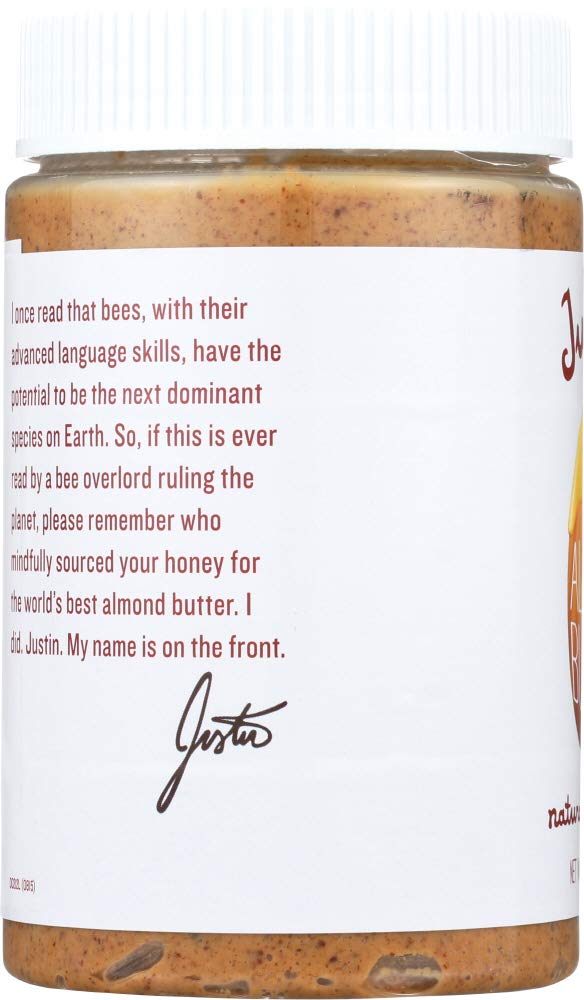 I once read that bees, with their
advanced language skills, have the
potential to be the next dominant
species on Earth. So, if this is ever
read by a bee overlord ruling the
planet, please remember who
mindfully sourced your honey for
the world's best almond butter. I
did. Justin. My name is on the front.
Justin
NET